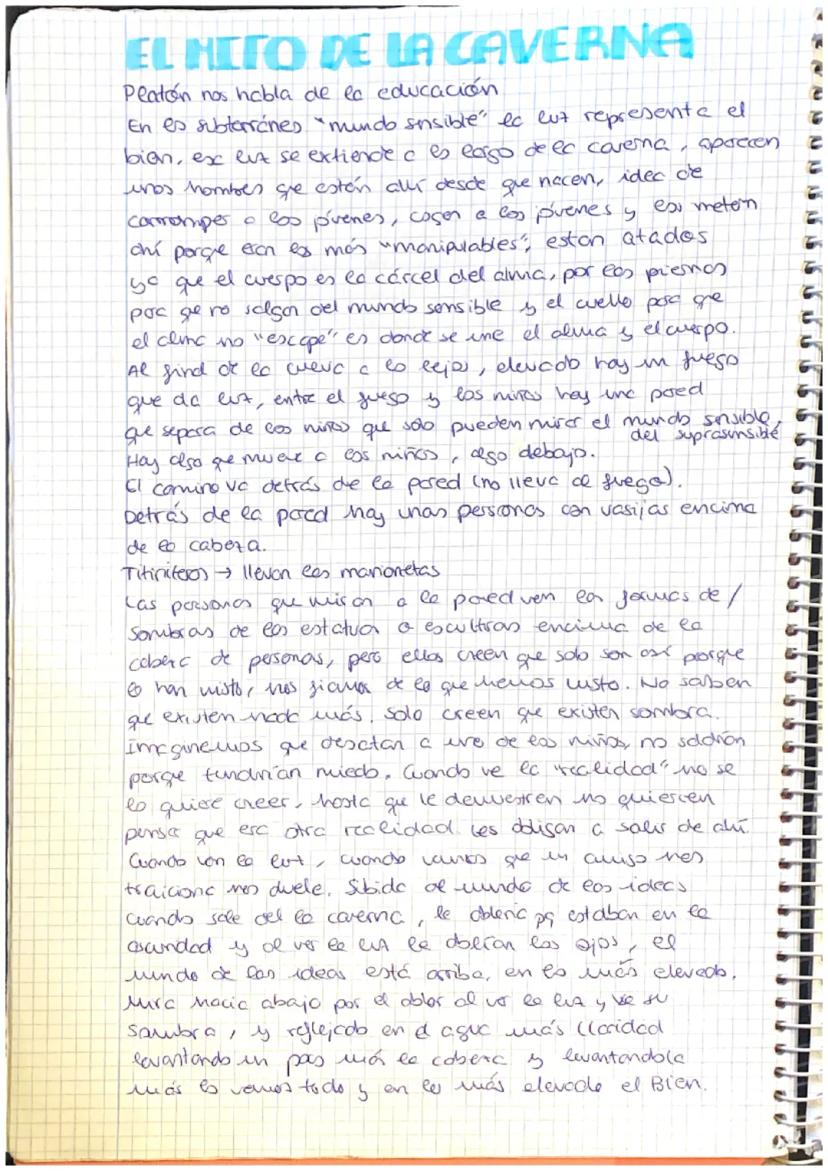 EL MITO DE LA CAVERNA
Platón nos habla de la educación
En lo subterráneo "mundo sensible" la luz representa el
bien, esa luz se extiende a lo largo de la caverna, aparecen
unos hombres que están allí desde que nacen, idea de
corromper a los jóvenes, cogen a los jóvenes y los meten
ahí porque eran los más "manipulables"; estan atados
ya que el cuerpo es la cárcel del alma, por las piernas
para que no salgan del mundo sensible y el cuello para que
el alma no "escape" es donde se une el alma y el cuerpo.
Al final de la cueva a lo lejos, elevado hay un fuego
que da luz, entre el fuego y los niños hay una pared
que separa de los niños que solo pueden mirar el mundo sensible,
del suprasensible
Hay algo que mueve a los niños, algo debajo.
El camino va detrás de la pared (no lleva al fuego).
Detrás de la pared hay unas personas con vasijas encima
de la cabeza.
Titiriteros → llevan las marionetas
Las personas que miran a la pared ven las formas de /
sombras de las estatuas o esculturas encima de la
cabeza de personas, pero ellos creen que solo son así porque
lo han visto, nos fiamos de lo que hemos visto. No saben
que existen nada más, solo creen que existen sombra.
Imaginemos que desatan a uno de los niños, no saldrían
porque tendrían miedo. Cuando ve la "realidad" no se
lo quiere creer, hasta que le demuestren no quieren
pensar que esa otra realidad. Les obligan a salir de ahí
Cuando ven la luz, cuando vemos que un amigo nos
traiciona nos duele. Subida al mundo de las ideas
cuando sale del la caverna, le dolería pq estaban en la
oscuridad y al ver la luz le dolerían los ojos, el
mundo de las ideas está arriba, en lo más elevado.
Mira hacia abajo por el dolor al ver la luz y ve su
sombra, y reflejado en el agua más claridad
levantando un poco más la cabeza y levantandola
más lo vemos todo y en lo más elevado el Bien.